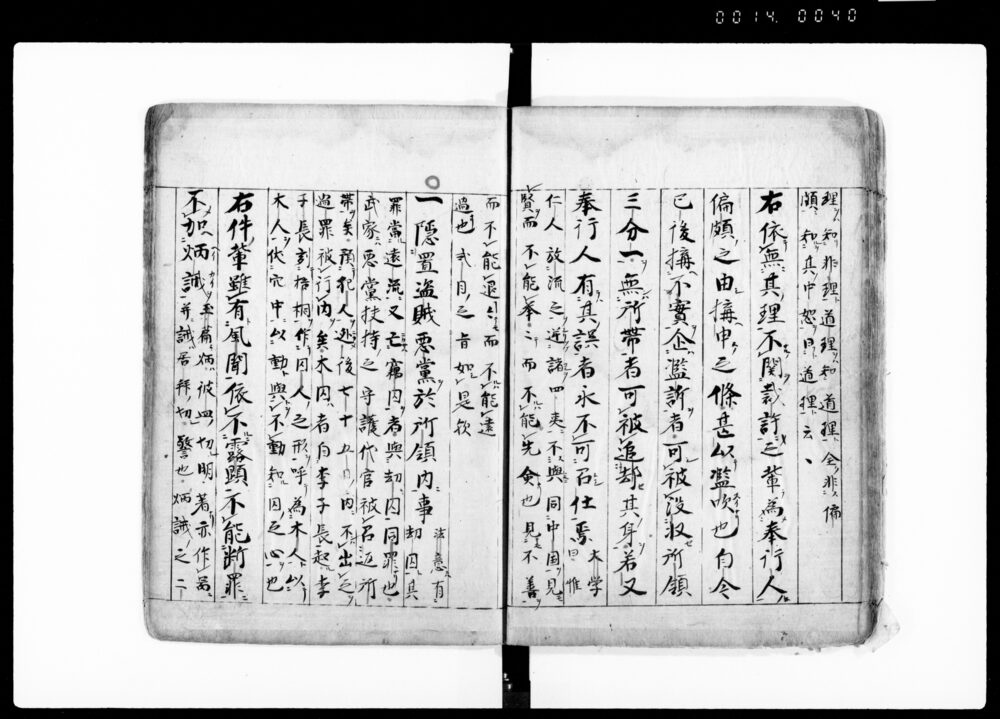 0014. 0040
理ヲ知非理道理知道理全非偏
頗知其中恕曰道理云々
右依無其理不関裁許之輩為奉行人
偏頗之由搆申之條甚以濫吹也自今
已後搆不實企濫訴者可被没収所領
三分一無所帯者可被追却其身若又
奉行人有其誤者永不可召仕焉 大学曰惟
仁人放流之迸諸四夷不與同中国見
賢而不能挙々而不能先命也見不善
而不能退々而不能遠
過也式目之旨如是欤
一隠置盗賊悪黨於所領内事 法意有却囚其
罪當遠流又亡竊囚者與却囚同罪也
武家悪黨扶持之守護代官被召近所
帯矣預犯人逃後七十五日内不出之
過罪被行内矣木囚者自李子長起李
子長刻梧桐作囚人之形呼為木人以
木人伏穴中以動與不動知囚之心也
右件輩雖有風聞依不露顕不能断罪
不加炳誡 玉篇炳彼皿切明著亦作昺
并誡居拜切警也炳誡之二